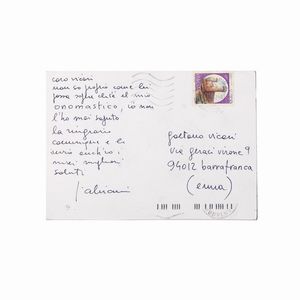 caro vicari
non so proprio come lei
possa sapere che è il mio
onomastico, io non
l'ho mai saputo
la ringrazio
comunque e le
invio anch'io i
miei migliori
saluti
gaetano vicari
via geraci virone 9
94012 barrafranca
(enna)